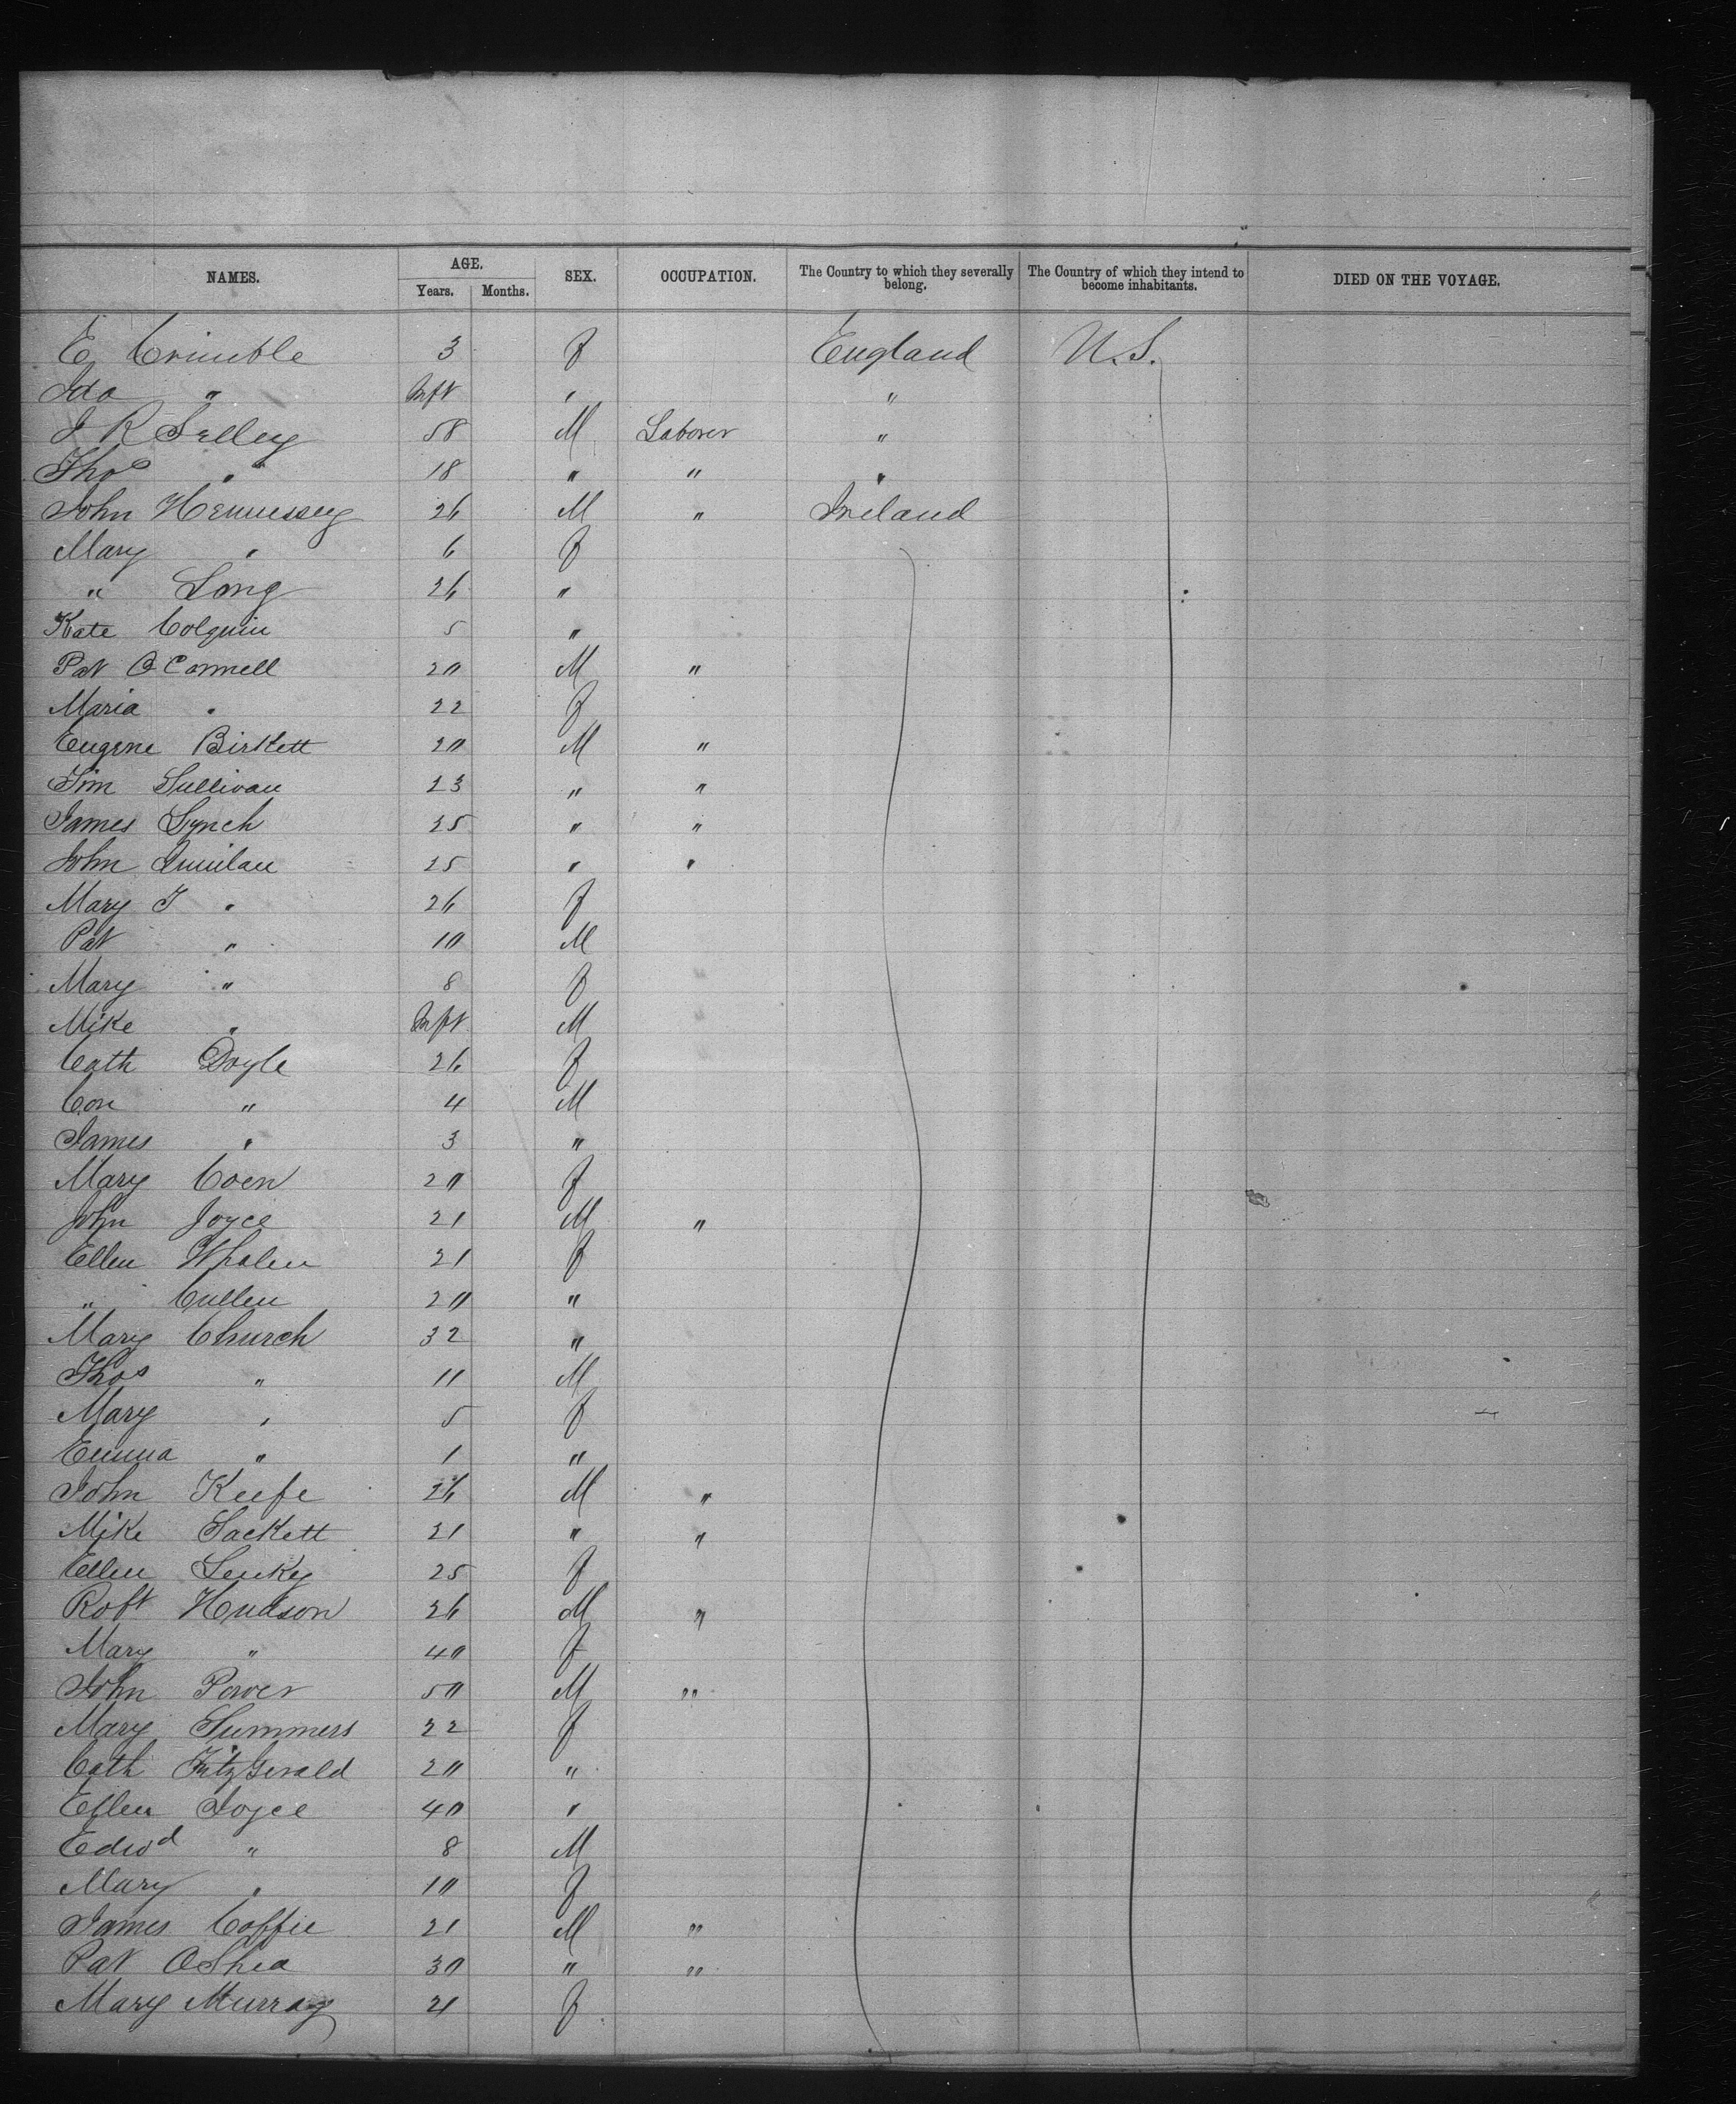 NAMES. AGE. Years. Months. SEX. OCCUPATION. The Country to which they severally belong. The Country of which they intend to become inhabitants. DIED ON THE VOYAGE.
E Crimble 3 f England U.S.
Ida " Inft " "
J R Selley 58 M Laborer "
Thos " 18 " " "
John Hennessey 26 M " Ireland
Mary " 6 f
" Long 26 "
Kate Colquin 5 "
Pat O Connell 20 M "
Maria " 22 f
Eugene Birkett 20 M "
Tim Sullivan 23 " "
James Lynch 25 " "
John Quinlan 25 " "
Mary J " 26 f
Pat " 10 M
Mary " 8 f
Mike " Inft M
Cath Doyle 26 f
Con " 4 M
James " 3 "
Mary Coen 20 f
John Joyce 21 M "
Ellen Whalen 21 f
" Cullen 20 "
Mary Church 32 "
Thos " 11 M
Mary " 5 f
Emma " 1 "
John Keefe 26 M "
Mike Sackett 21 " "
Ellen 25 f
Robt Hudson 26 M "
Mary " 40 f
John Power 50 M "
Mary Summers 22 f
Cath FitzGerald 20 "
Ellen Joyce 40 "
Edwd " 8 M
Mary " 10 f
James Coffie 21 M "
Pat OShea 30 " "
Mary Murray 21 f